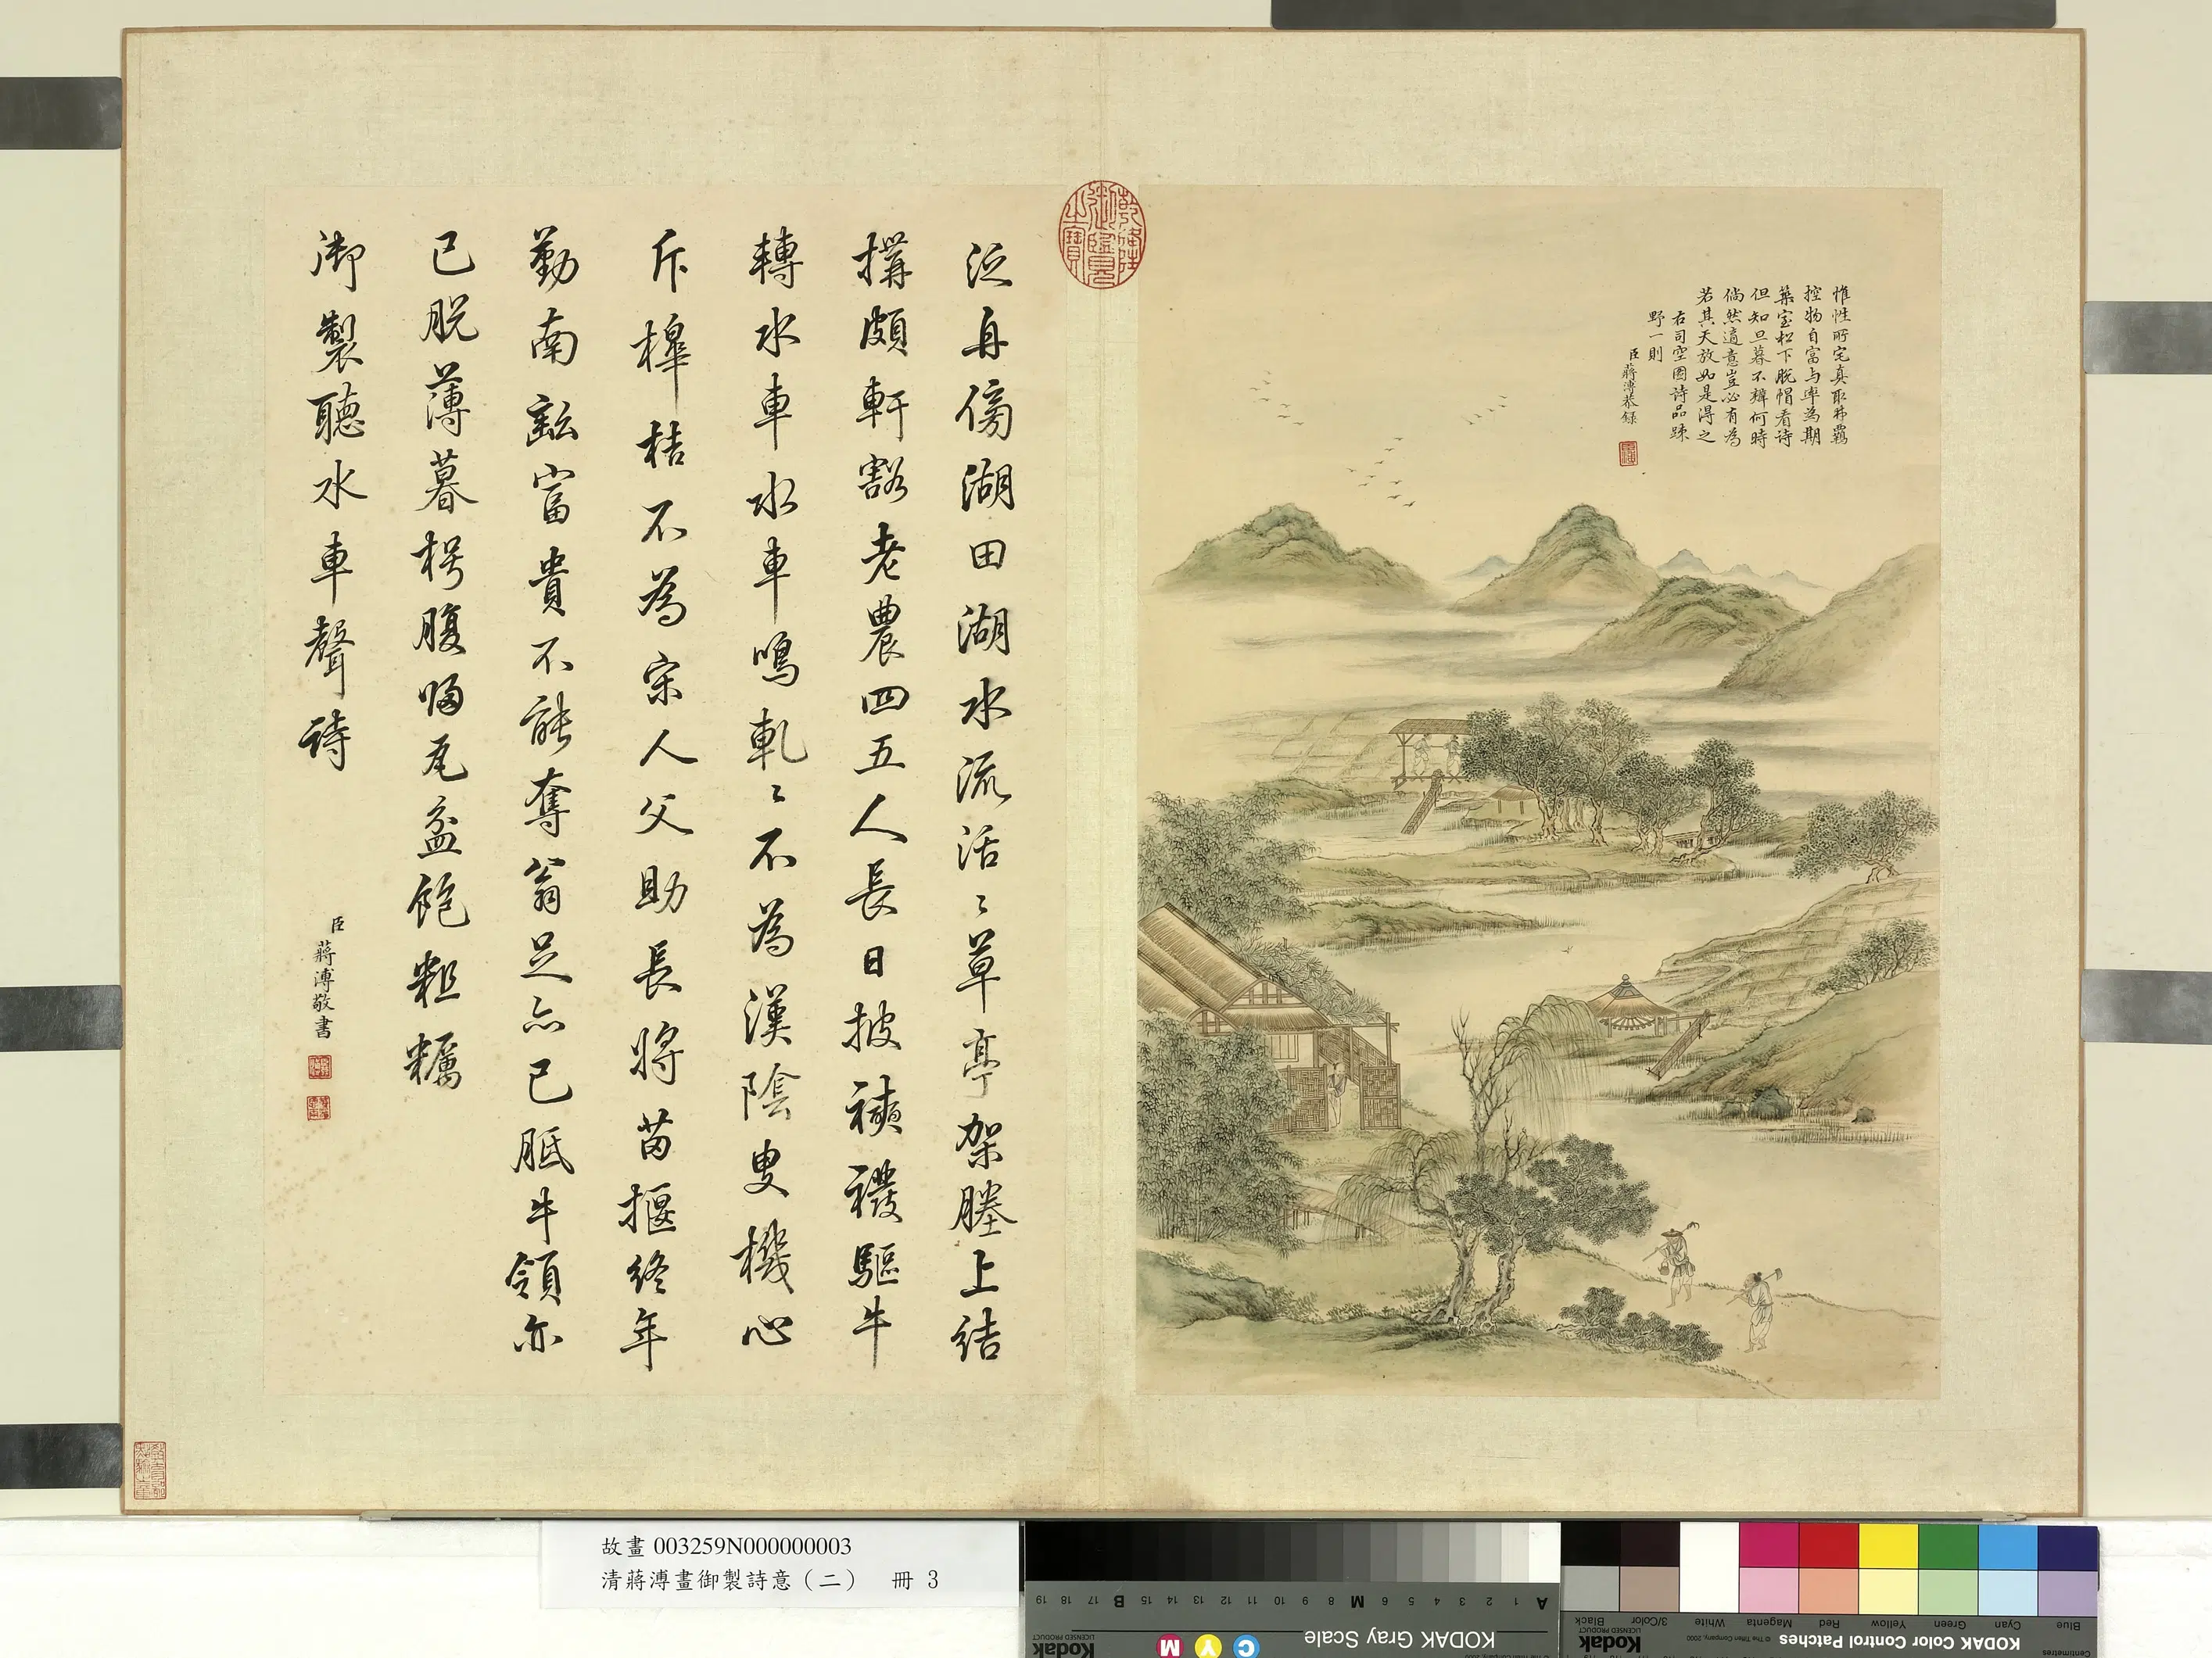 惟性所宅真取弗羈
控物自富与率為期
築室松下脫帽看诗
但知旦暮不辨何時
倘然適意豈必有為
若其天放如是得之
右司空圖诗品疎
野一則
臣蔣溥恭録
乾隆御覽之寶
泛舟傍湖田湖水流活〻草亭架塍上结
搆頗軒豁老農四五人長日披襏襫驅牛
轉水車水車鳴軋〻不為漢陰叟機心
斥槔桔不為宋人父助長將苗揠终年
勤南畝富貴不能奪翁足亦已胝牛領亦
已脱薄暮枵腹歸瓦盆飽粗糲
御製聽水車聲詩
臣蔣溥敬書
故畫 003259N000000003
清蔣溥畫御製詩意（二） 冊 3
KODAK Gray Scale
C Y M
Kodak
LICENSED PRODUCT
A 1 2 3 4 5 6 M 8 9 10 11 12 13 14 15 B 17 18 19
KODAK Color Control Patches
© The Tiffen Company, 2000
Kodak
LICENSED PRODUCT
Centimetres
Blue Cyan Green Yellow Red Magenta White 3/Color Black